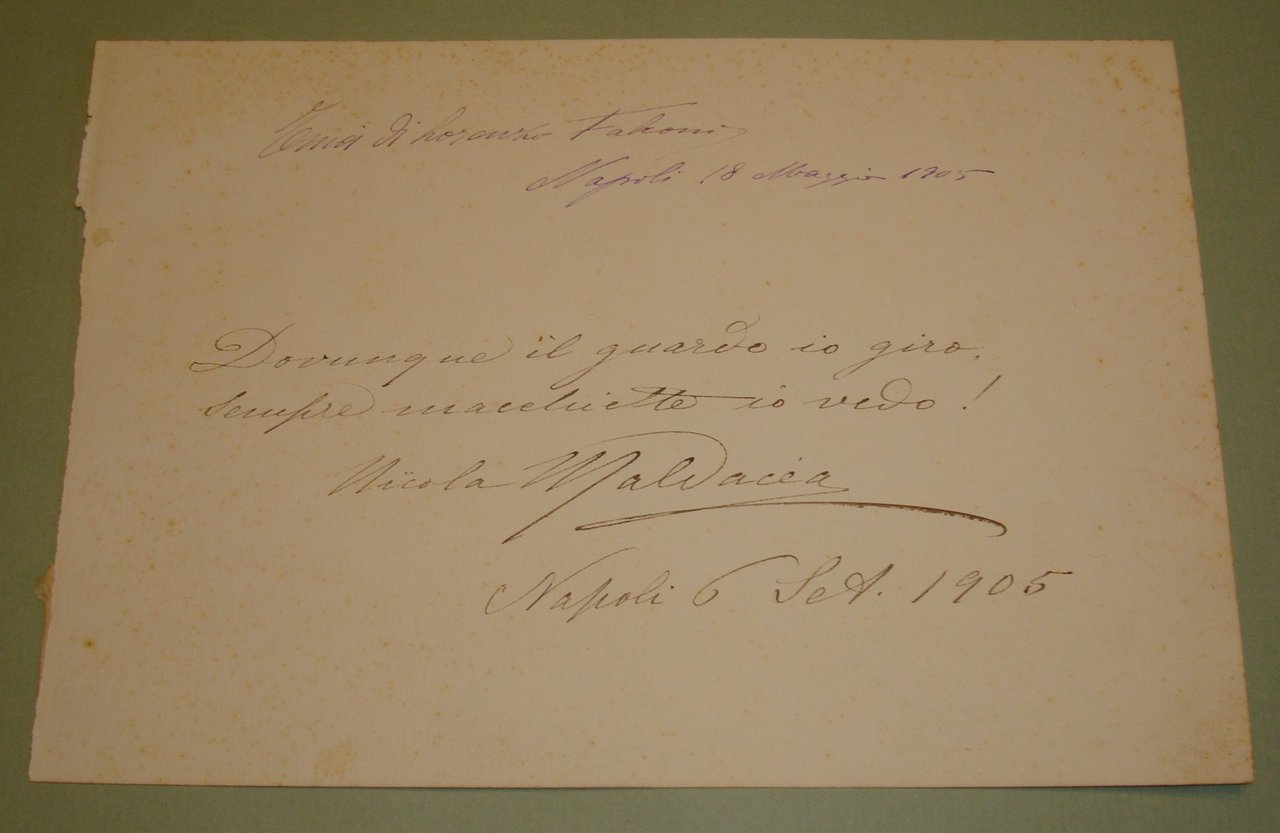 di Lorenzo
Napoli 18 Maggio 1905
Dovunque il guardo io giro,
sempre macchiette io vedo!
Nicola Maldacea
Napoli 6 Set. 1905